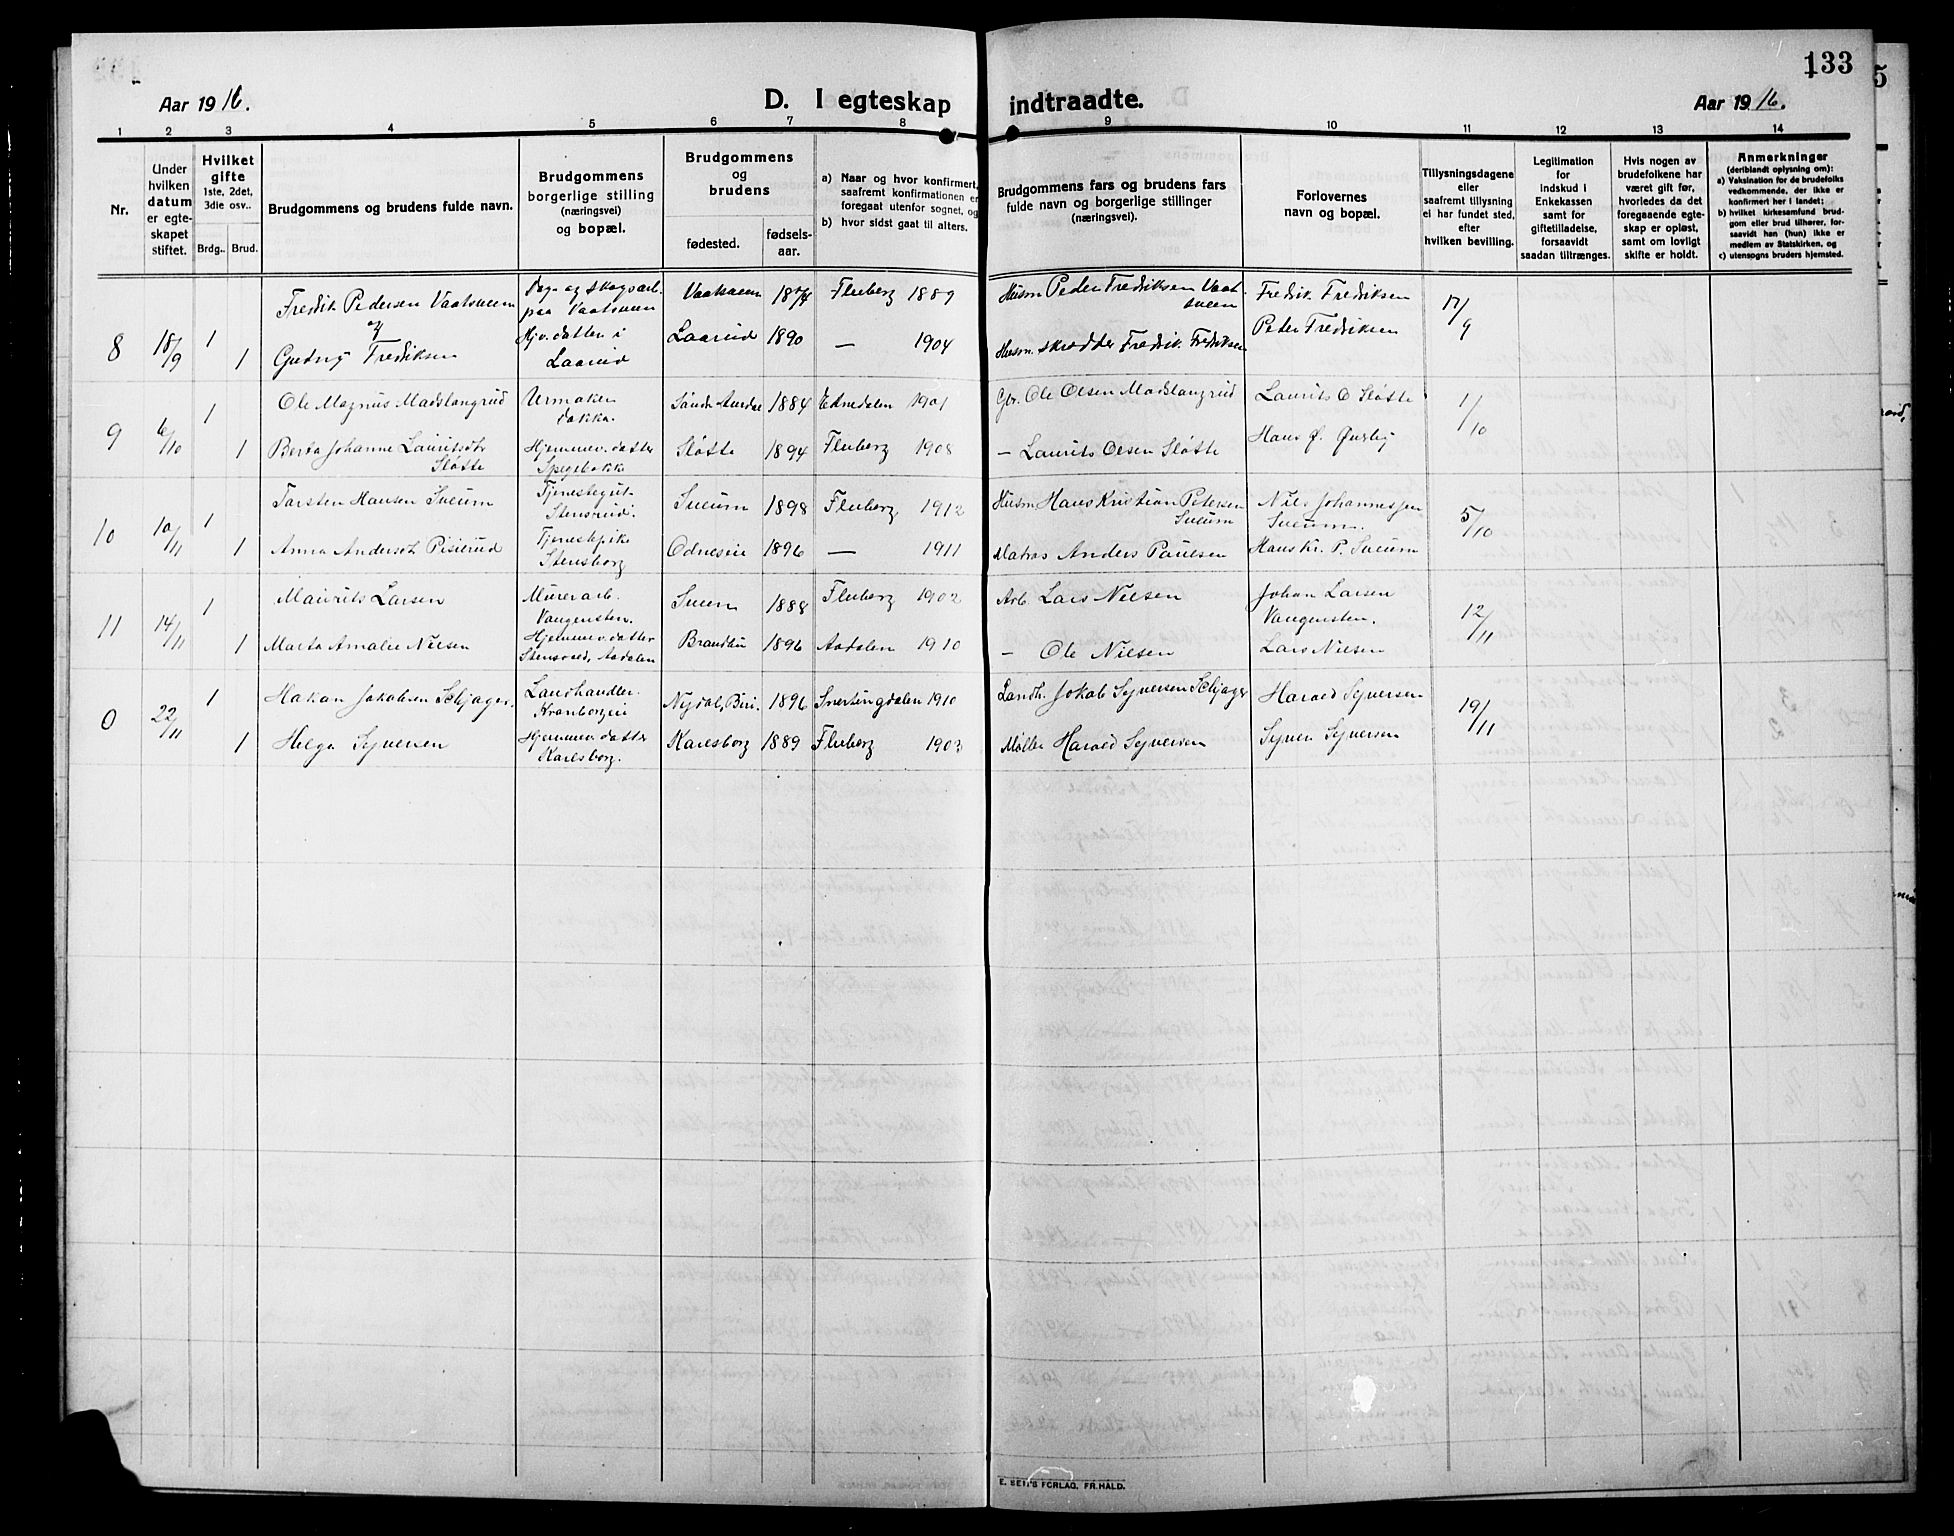 133
Aar 1916.
D. I egteskap indtraadte.
Aar 1916.
1 2 3 4 5 6 7 8 9 10 11 12 13 14
Nr.
Under hvilken datum er egte-skapet stiftet.
Hvilket gifte 1ste, 2det, 3die osv..
Brdg.. Brud.
Brudgommens og brudens fulde navn.
Brudgommens borgerlige stilling (næringsvei) og bopæl.
Brudgommens og brudens
fødested.
fødsels-aar.
a) Naar og hvor konfirmert, saafremt konfirmationen er foregaat utenfor sognet, og
b) hvor sidst gaat til alters.
Brudgommens fars og brudens fars fulde navn og borgerlige stillinger (næringsvei).
Forlovernes navn og bopæl.
Tillysningsdagene eller saafremt tillysning ei har fundet sted, efter hvilken bevilling.
Legitimation for Indskud i Enkekassen samt for giftetilladelse, forsaavidt saadan tiltrænges.
Hvis nogen av brudefolkene har været gift før, hvorledes da det foregaaende egte-skap er opløst, samt om lovligt skifte er holdt.
Anmerkninger (deriblandt oplysning om):
a) Vaksination for de brudefolks vedkommende, der ikke er konfirmert her i landet;
b) hvilket kirkesamfund brud-gom eller brud tilhører, for-saavidt han (hun) ikke er medlem av Statskirken, og
c) utensogns bruders hjemsted.
8 18/9 1 Fredrik Pedersen Vaatsveen Dag- og skogsarb. paa Vaatsveen Vaatsveen 1874 Fluberg 1889 Husm Peder Fredriksen Vaatsveen Fredrik Fredriksen 17/9
og
1 Gudny Fredriksen Hjv. datter i Laarud Laarud 1890 — 1904 Husm. skrædder Fredrik Fredriksen Peter Fredriksen
9 6/10 1 Ole Magnus Madslangrud Urmaker Dokka. Søndr Aurdal 1884 Etnedalen 1901 Gbr. Ole Olsen Madslangrud Laurits O Sløtte 1/10
1 Berta Johanne Lauritsdtr Sløtte Hjemmev. datter Sløtte 1894 Fluberg 1908 — Laurits Olsen Sløtte Hans Ø.
10 10/11 1 Torsten Hansen Sveum Tjenestegut Stensrud. Sveum 1898 Fluberg 1912 Husm Hans Kristian Petersen Sveum Nils Johannesen Sveum. 5/10
1 Anna Andersdt Tjenestpike Stensborg Odnesie 1896 — 1911 Matros Anders Paulsen Hans Kr. P. Sveum
11 14/11 1 Maurits Larsen Murerarb. Vangensten. Sveum 1888 Fluberg 1902 Arb. Lars Nilsen Johan Larsen Vangensten. 12/11
1 Marta Amalie Nilsen Hjemmev. datter Aadalen Brandbu 1896 Aadalen 1910 — Ole Nilsen Lars Nilsen
0 22/11 1 Hakan Jakobsen Schjager. Landhandler. Nydal, Biri. 1896 Snertingdalen 1910 Landh. Jokob Syversen Schjager Harald Syversen 19/11
1 Helga Syversen Hjemmev. datter Karlsborg. Karlsborg 1889 Fluberg 1903 Møller Harald Syversen Syver Syversen
FORLAG, FR.HALD.